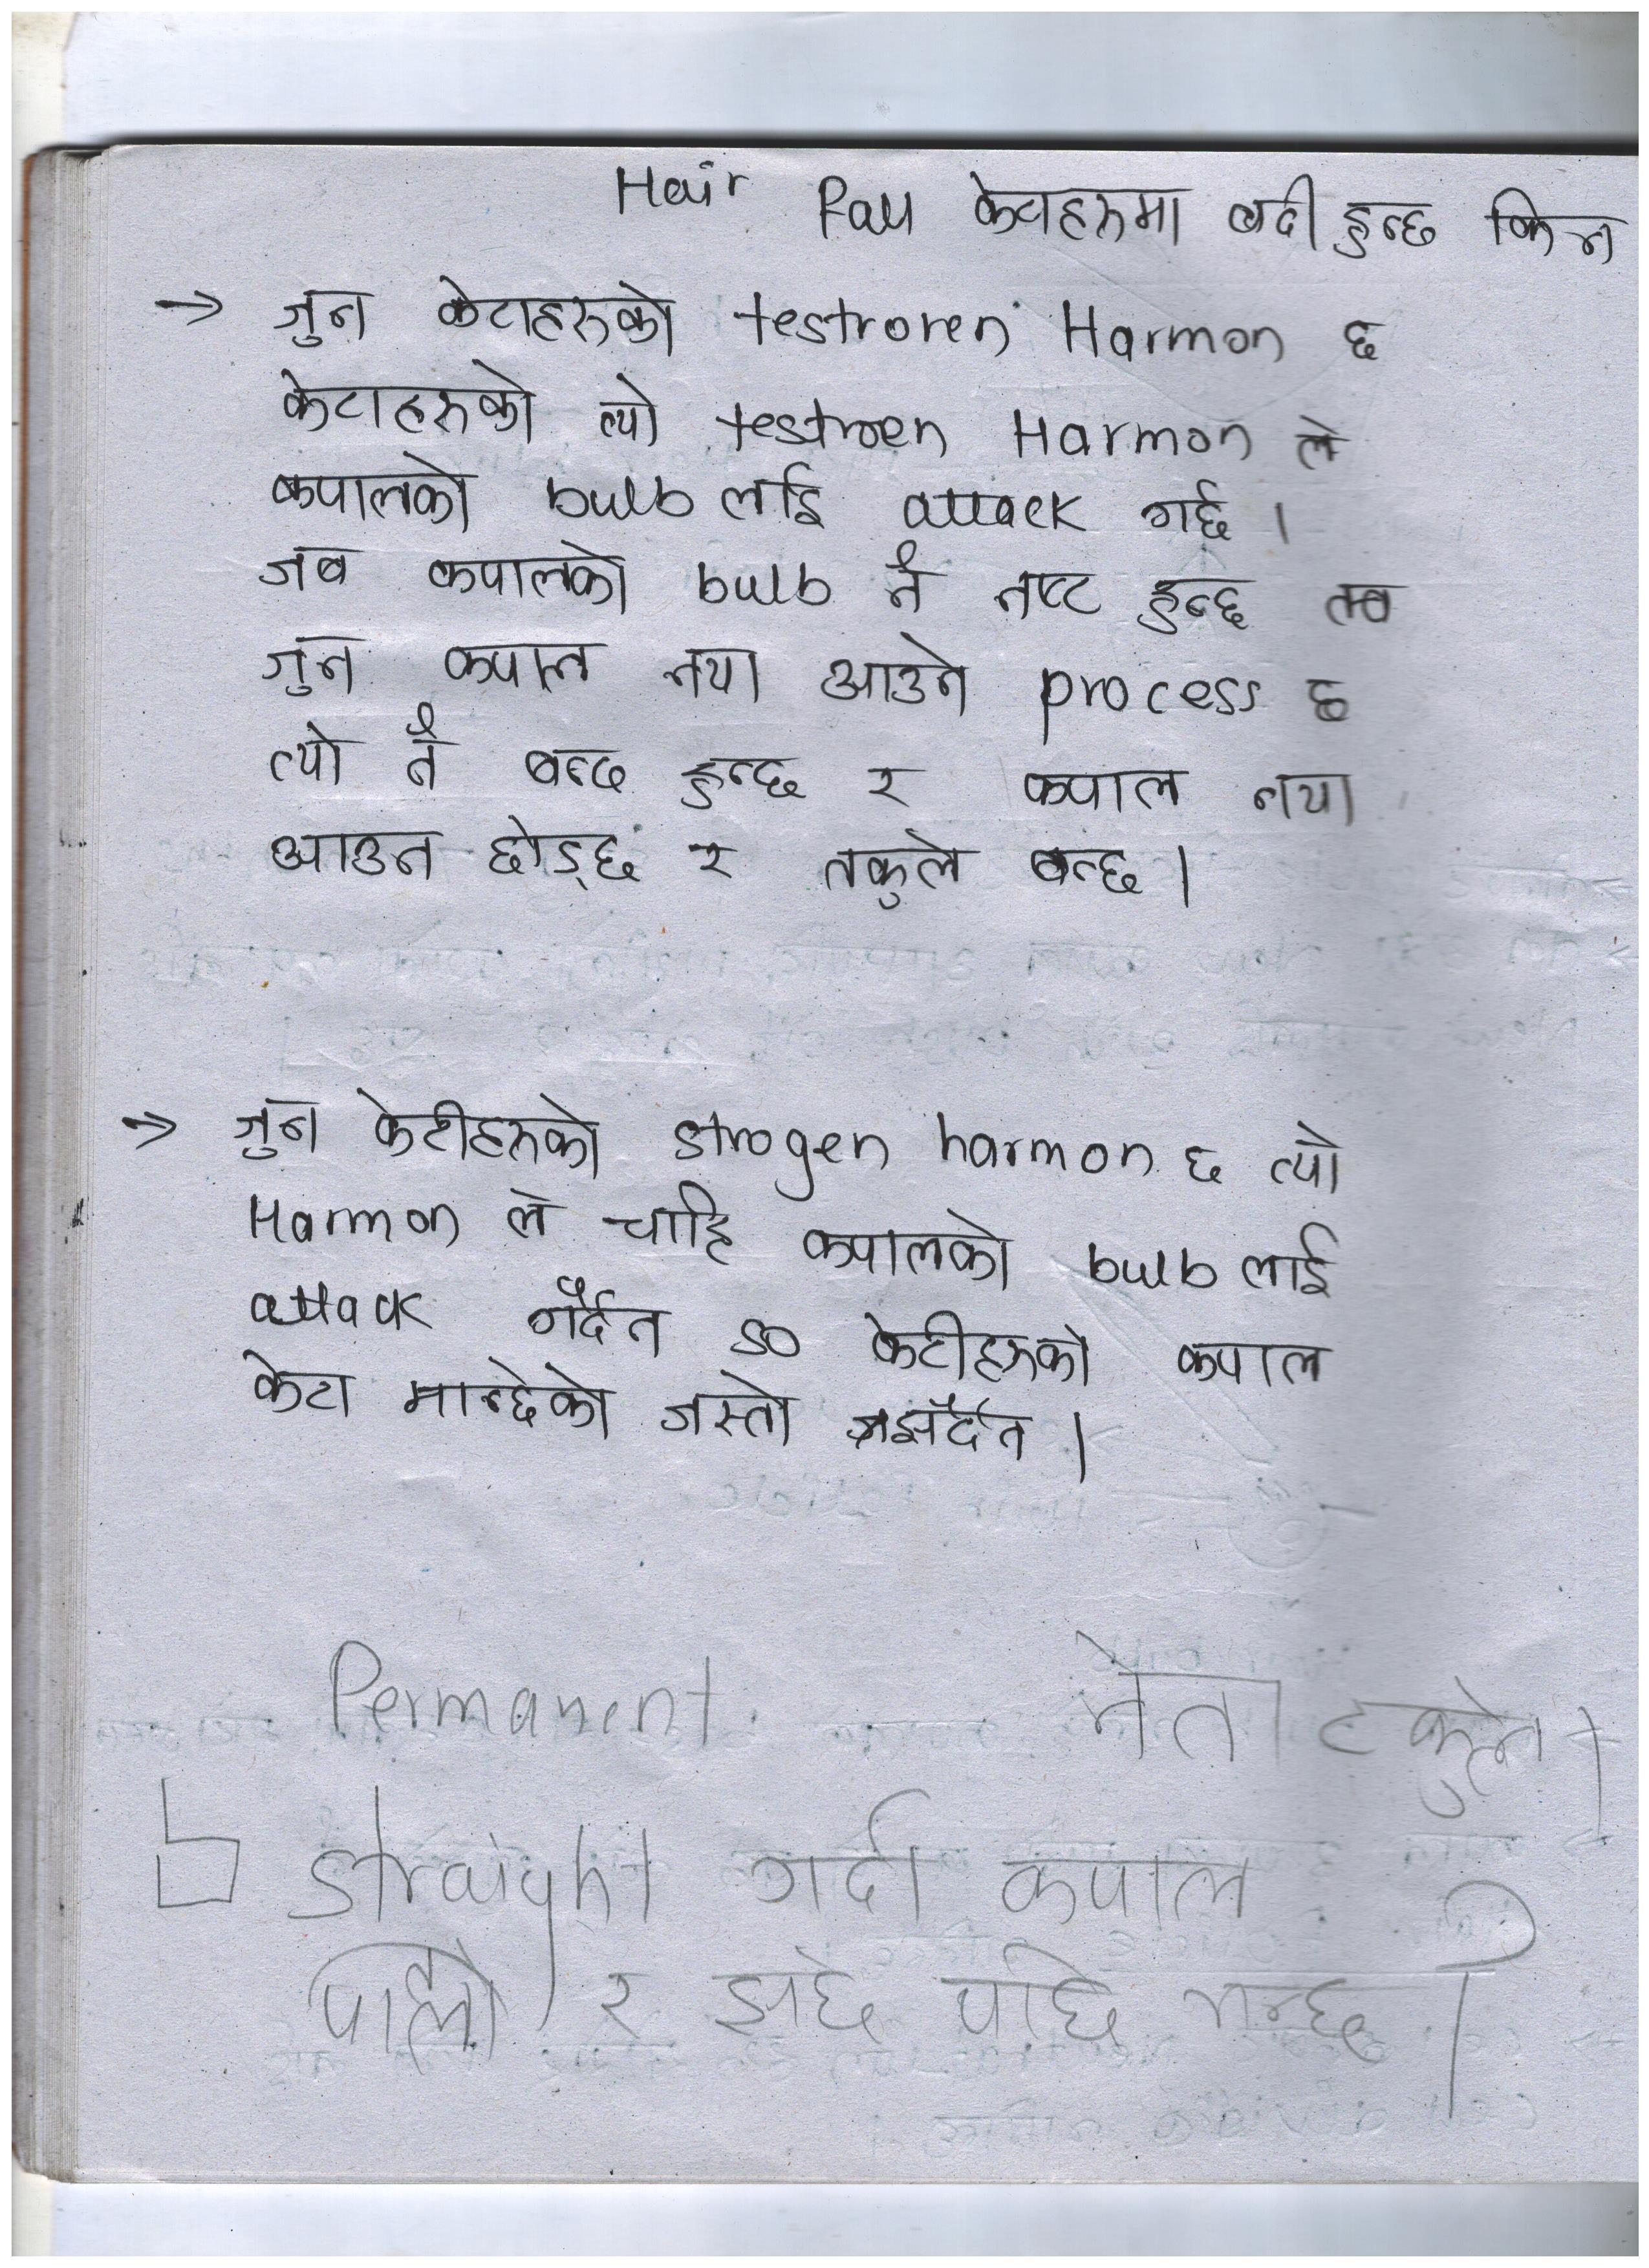 Hair Fall केटाहरुमा बढी हुन्छ किन
→ जुन केटाहरुको testroren Harmon छ
केटाहरुको त्यो testroen Harmon ले
कपालको bulb लाई attack गर्छ ।
जब कपालको bulb नै नष्ट हुन्छ तब
जुन कपाल नया आउने process छ
त्यो नै बन्द हुन्छ र कपाल नया
आउन छोड्छ र तकुले बन्छ ।
→ जुन केटीहरुको strogen harmon छ त्यो
Harmon ले चाहि कपालको bulb लाई
attack गर्दैन so केटीहरुको कपाल
केटा मान्छेको जस्तो झर्दैन ।
Permanent नेता
straight गर्दा कपाल
र झर्छ पछि